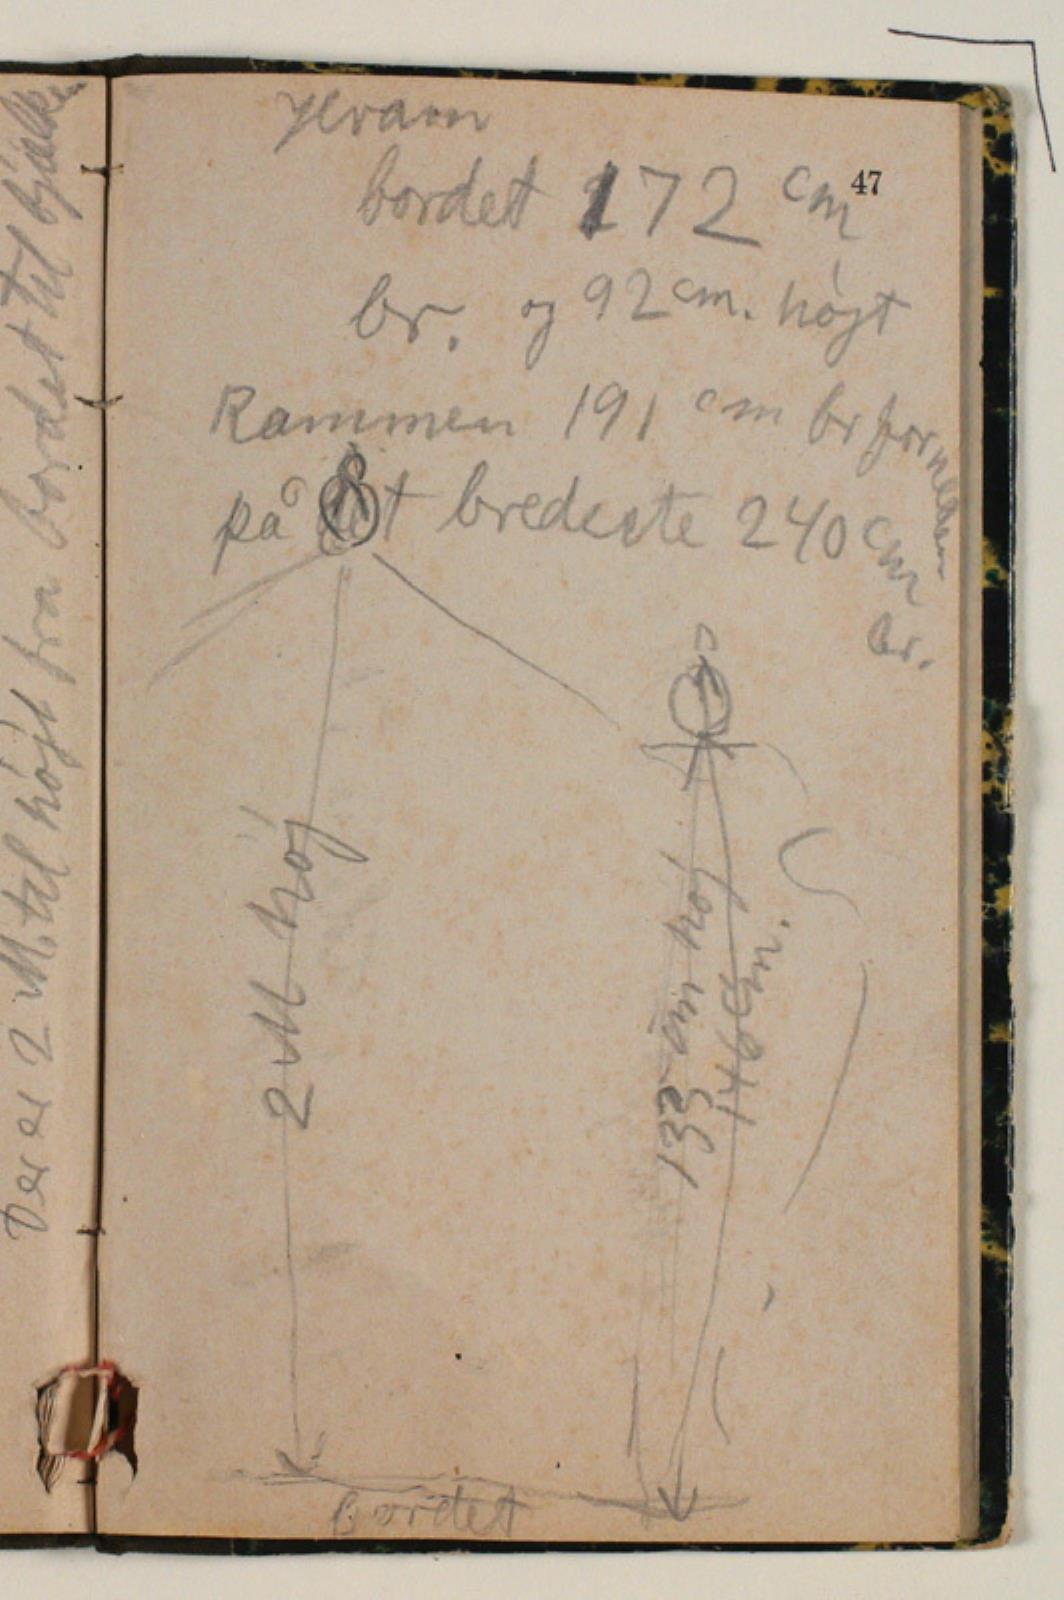 Der er 2 M. til højt fra bordet til bjælken
47
bordet 172 cm
br. og 92 cm. højt
Rammen 191 cm br forneden
på det bredeste 240 cm
br.
2 M høj
133 cm høj
146 cm.
bordet